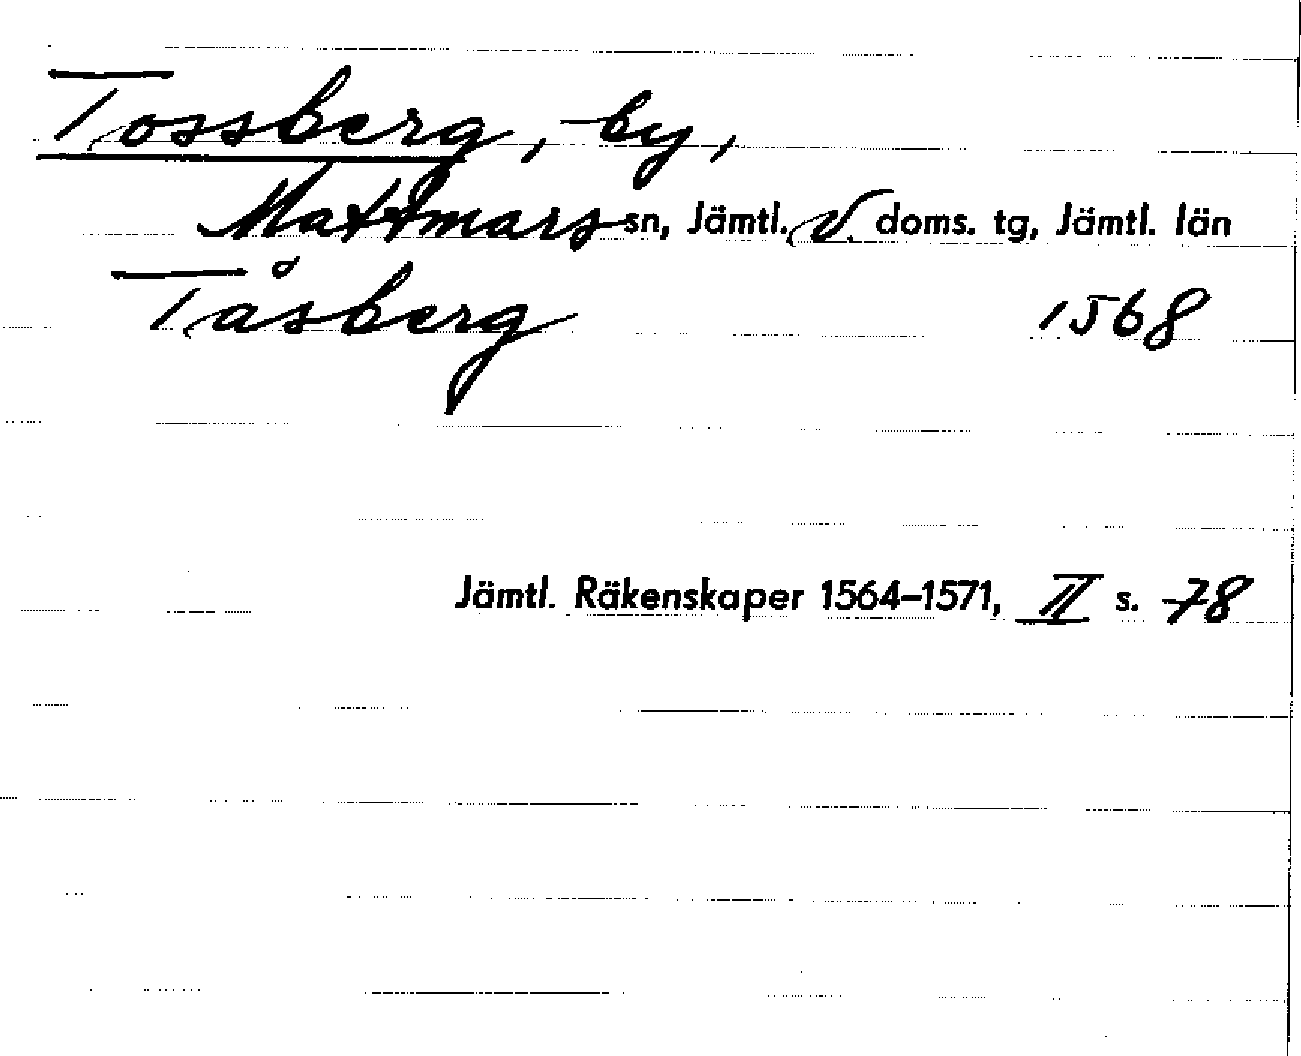 Tossberg, by,
Mattmars sn, Jämtl. v. doms. tg, Jämtl. län
Tåsberg 1568
Jämtl. Räkenskaper 1564–1571, II s. 78